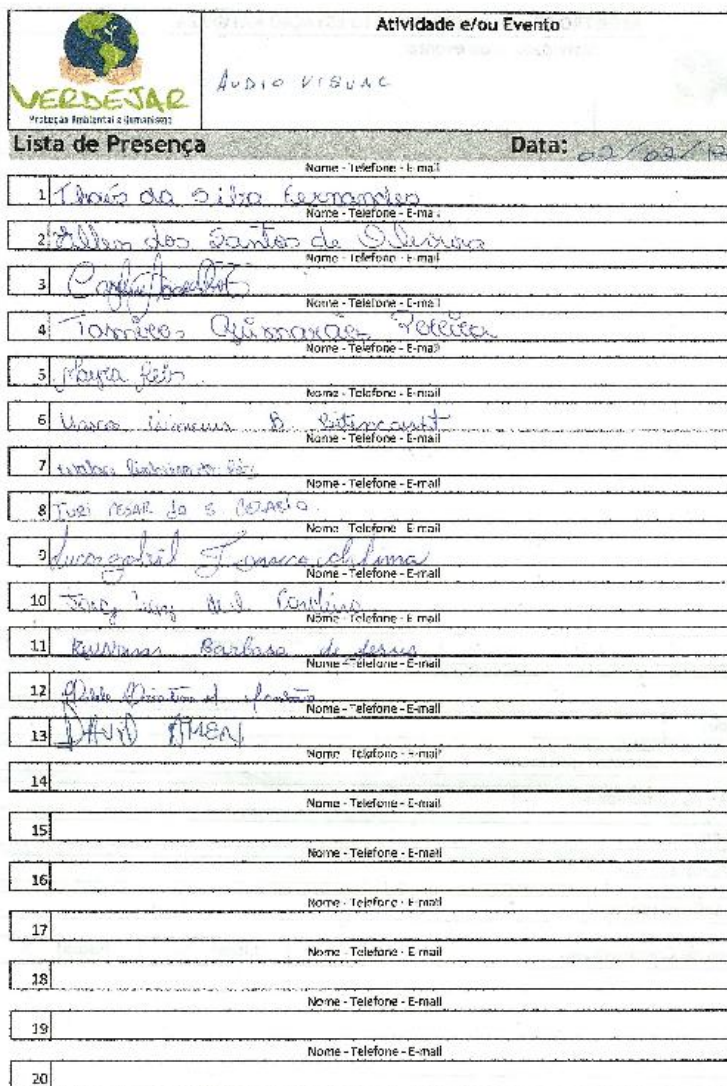 Atividade e/ou Evento
AUDIO VISUAL
VERDEJAR
Proteção Ambiental e Humanismo
Lista de Presença Data: 02/02/12
Nome - Telefone - E-mail
1 Thaís da Silva Fernandes
Nome - Telefone - E-mail
2 Ellen dos Santos de Oliveira
Nome - Telefone - E-mail
3
Nome - Telefone - E-mail
4 Tamires Guimarães Pereira
Nome - Telefone - E-mail
5 Mayra Reis
Nome - Telefone - E-mail
6 B. Bitencourt
Nome - Telefone - E-mail
7
Nome - Telefone - E-mail
8 YURI CESAR da S.
Nome - Telefone - E-mail
9 Lucas gabriel
Nome - Telefone - E-mail
10
Nome - Telefone - E-mail
11 Barbosa de Jesus
Nome - Telefone - E-mail
12
Nome - Telefone - E-mail
13 DAVID
Nome - Telefone - E-mail
14
Nome - Telefone - E-mail
15
Nome - Telefone - E-mail
16
Nome - Telefone - E-mail
17
Nome - Telefone - E-mail
18
Nome - Telefone - E-mail
19
Nome - Telefone - E-mail
20